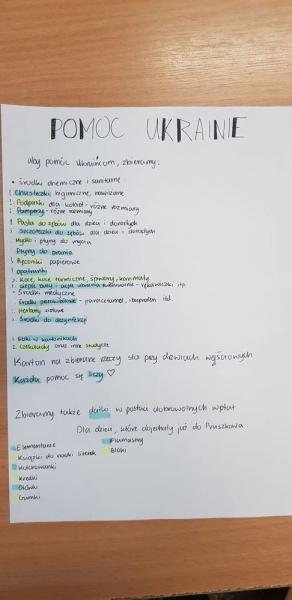 POMOC UKRAINIE
aby pomóc Ukraińcom, zbieramy:
• środki chemiczne i sanitarne
! Chusteczki higieniczne, nawilżane
! Podpaski dla kobiet - różne rozmiary
! Pampersy - różne rozmiary
! Pasta do zębów dla dzieci i dorosłych
! Szczoteczki do zębów dla dzieci i dorosłych
Mydło i płyny do mycia
Płyny do prania
! Ręczniki papierowe
! opatrunki
! Koce, koce termiczne, śpiwory, karimaty
! ciepłe buty i - rękawiczki itp.
- środki medyczne
środki przeciwbólowe - paracetamol, ibuprofen itd.
Herbaty ziołowe
! Środki do dezynfekcji
! Soki w kartonikach
! Czekolady oraz inne słodycze
Karton na zbierane rzeczy stoi przy drzwiach wyjściowych
Każda pomoc się liczy ♡
Zbieramy także datki w postaci dobrowolnych wpłat
Dla dzieci, które dojechały już do Pruszkowa:
- Elementarze
- Flamastry
- Książki do nauki literek
- Bloki
- Kolorowanki
Kredki
- Ołówki
- Gumki